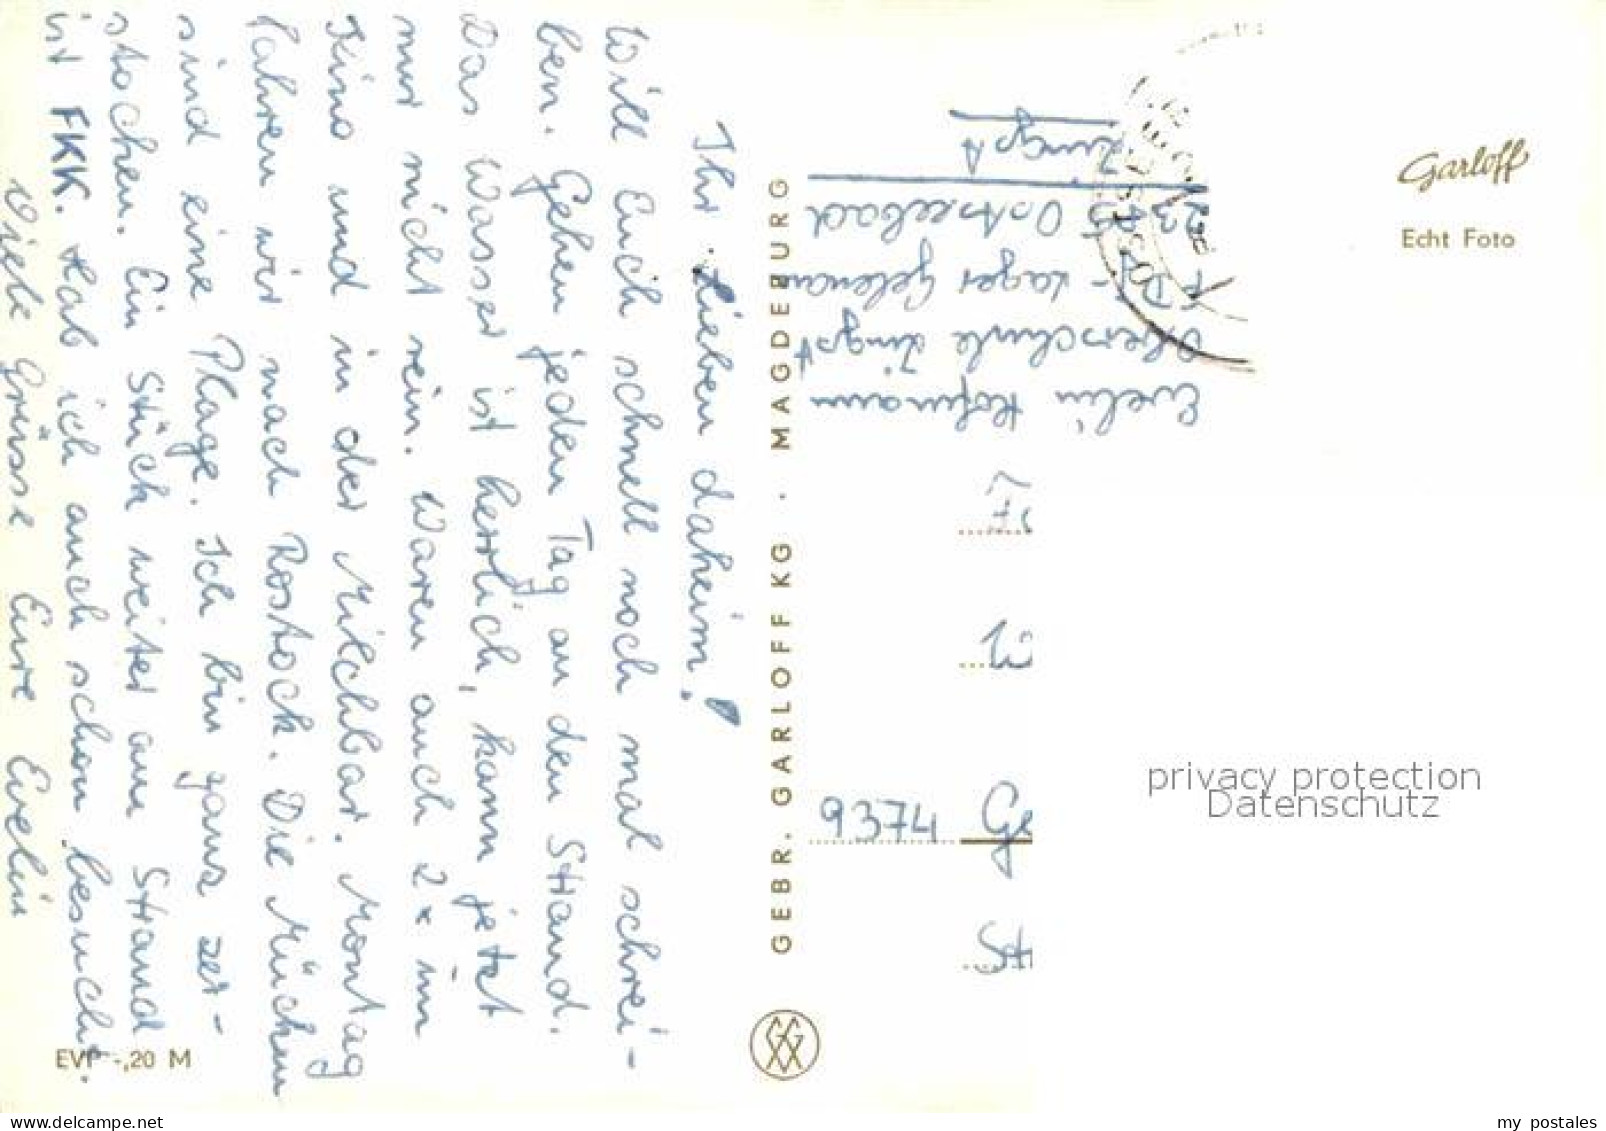 Ihr Lieben daheim!
Will Euch schnell noch mal schrei-
ben. Gehen jeden Tag an den Strand.
Das Wasser ist herrlich, kann jetzt
nur nicht rein. Waren auch 2x im
Kino und in der Milchbar. Montag
fahren wir nach Rostock. Die Mücken
sind eine Plage. Ich bin ganz zer-
stochen. Ein Stück weiter am Strand
ist FKK. Hab ich auch schon besucht.
Viele Grüsse Eure Evelin
EVP -,20 M
GEBR. GARLOFF KG · MAGDEBURG
Evelin Hofmann
Oberschule Zingst
Lager Gelenau
2383 Ostseebad
Zingst
OSTSEEBAD
Garloff
Echt Foto
9374 Ge
privacy protection
Datenschutz
my postales